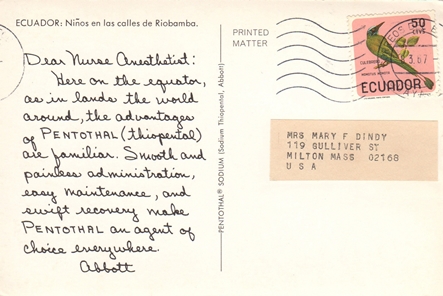 ECUADOR: Niños en las calles de Riobamba.
Dear Nurse Anesthetist:
Here on the equator,
as in lands the world
around, the advantages
of PENTOTHAL (thiopental)
are familiar. Smooth and
painless administration,
easy maintenance, and
swift recovery make
PENTOTHAL an agent of
choice everywhere.
Abbott
PENTOTHAL® SODIUM (Sodium Thiopental, Abbott)
PRINTED
MATTER
50
CTVS
ECUADOR
MRS MARY F DINDY
119 GULLIVER ST
MILTON MASS 02168
U S A